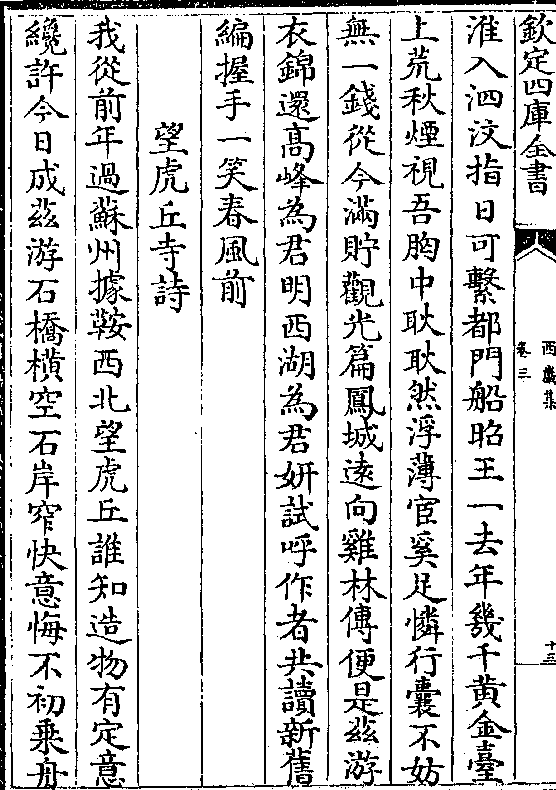 欽定四庫全書
西巖集
卷三
十三
淮入泗汶指日可繫都門船昭王一去年幾千黄金臺
上荒秋煙視吾胸中耿耿然浮薄宦奚足憐行囊不妨
無一錢從今滿貯觀光篇鳳城逺向雞林傳便是兹游
衣錦還髙峰為君明西湖為君妍試呼作者共讀新舊
編握手一笑春風前
望虎丘寺詩
我從前年過蘇州據鞍西北望虎丘誰知造物有定意
纔許今日成兹游石橋橫空一石岸窄快意悔不初乗舟